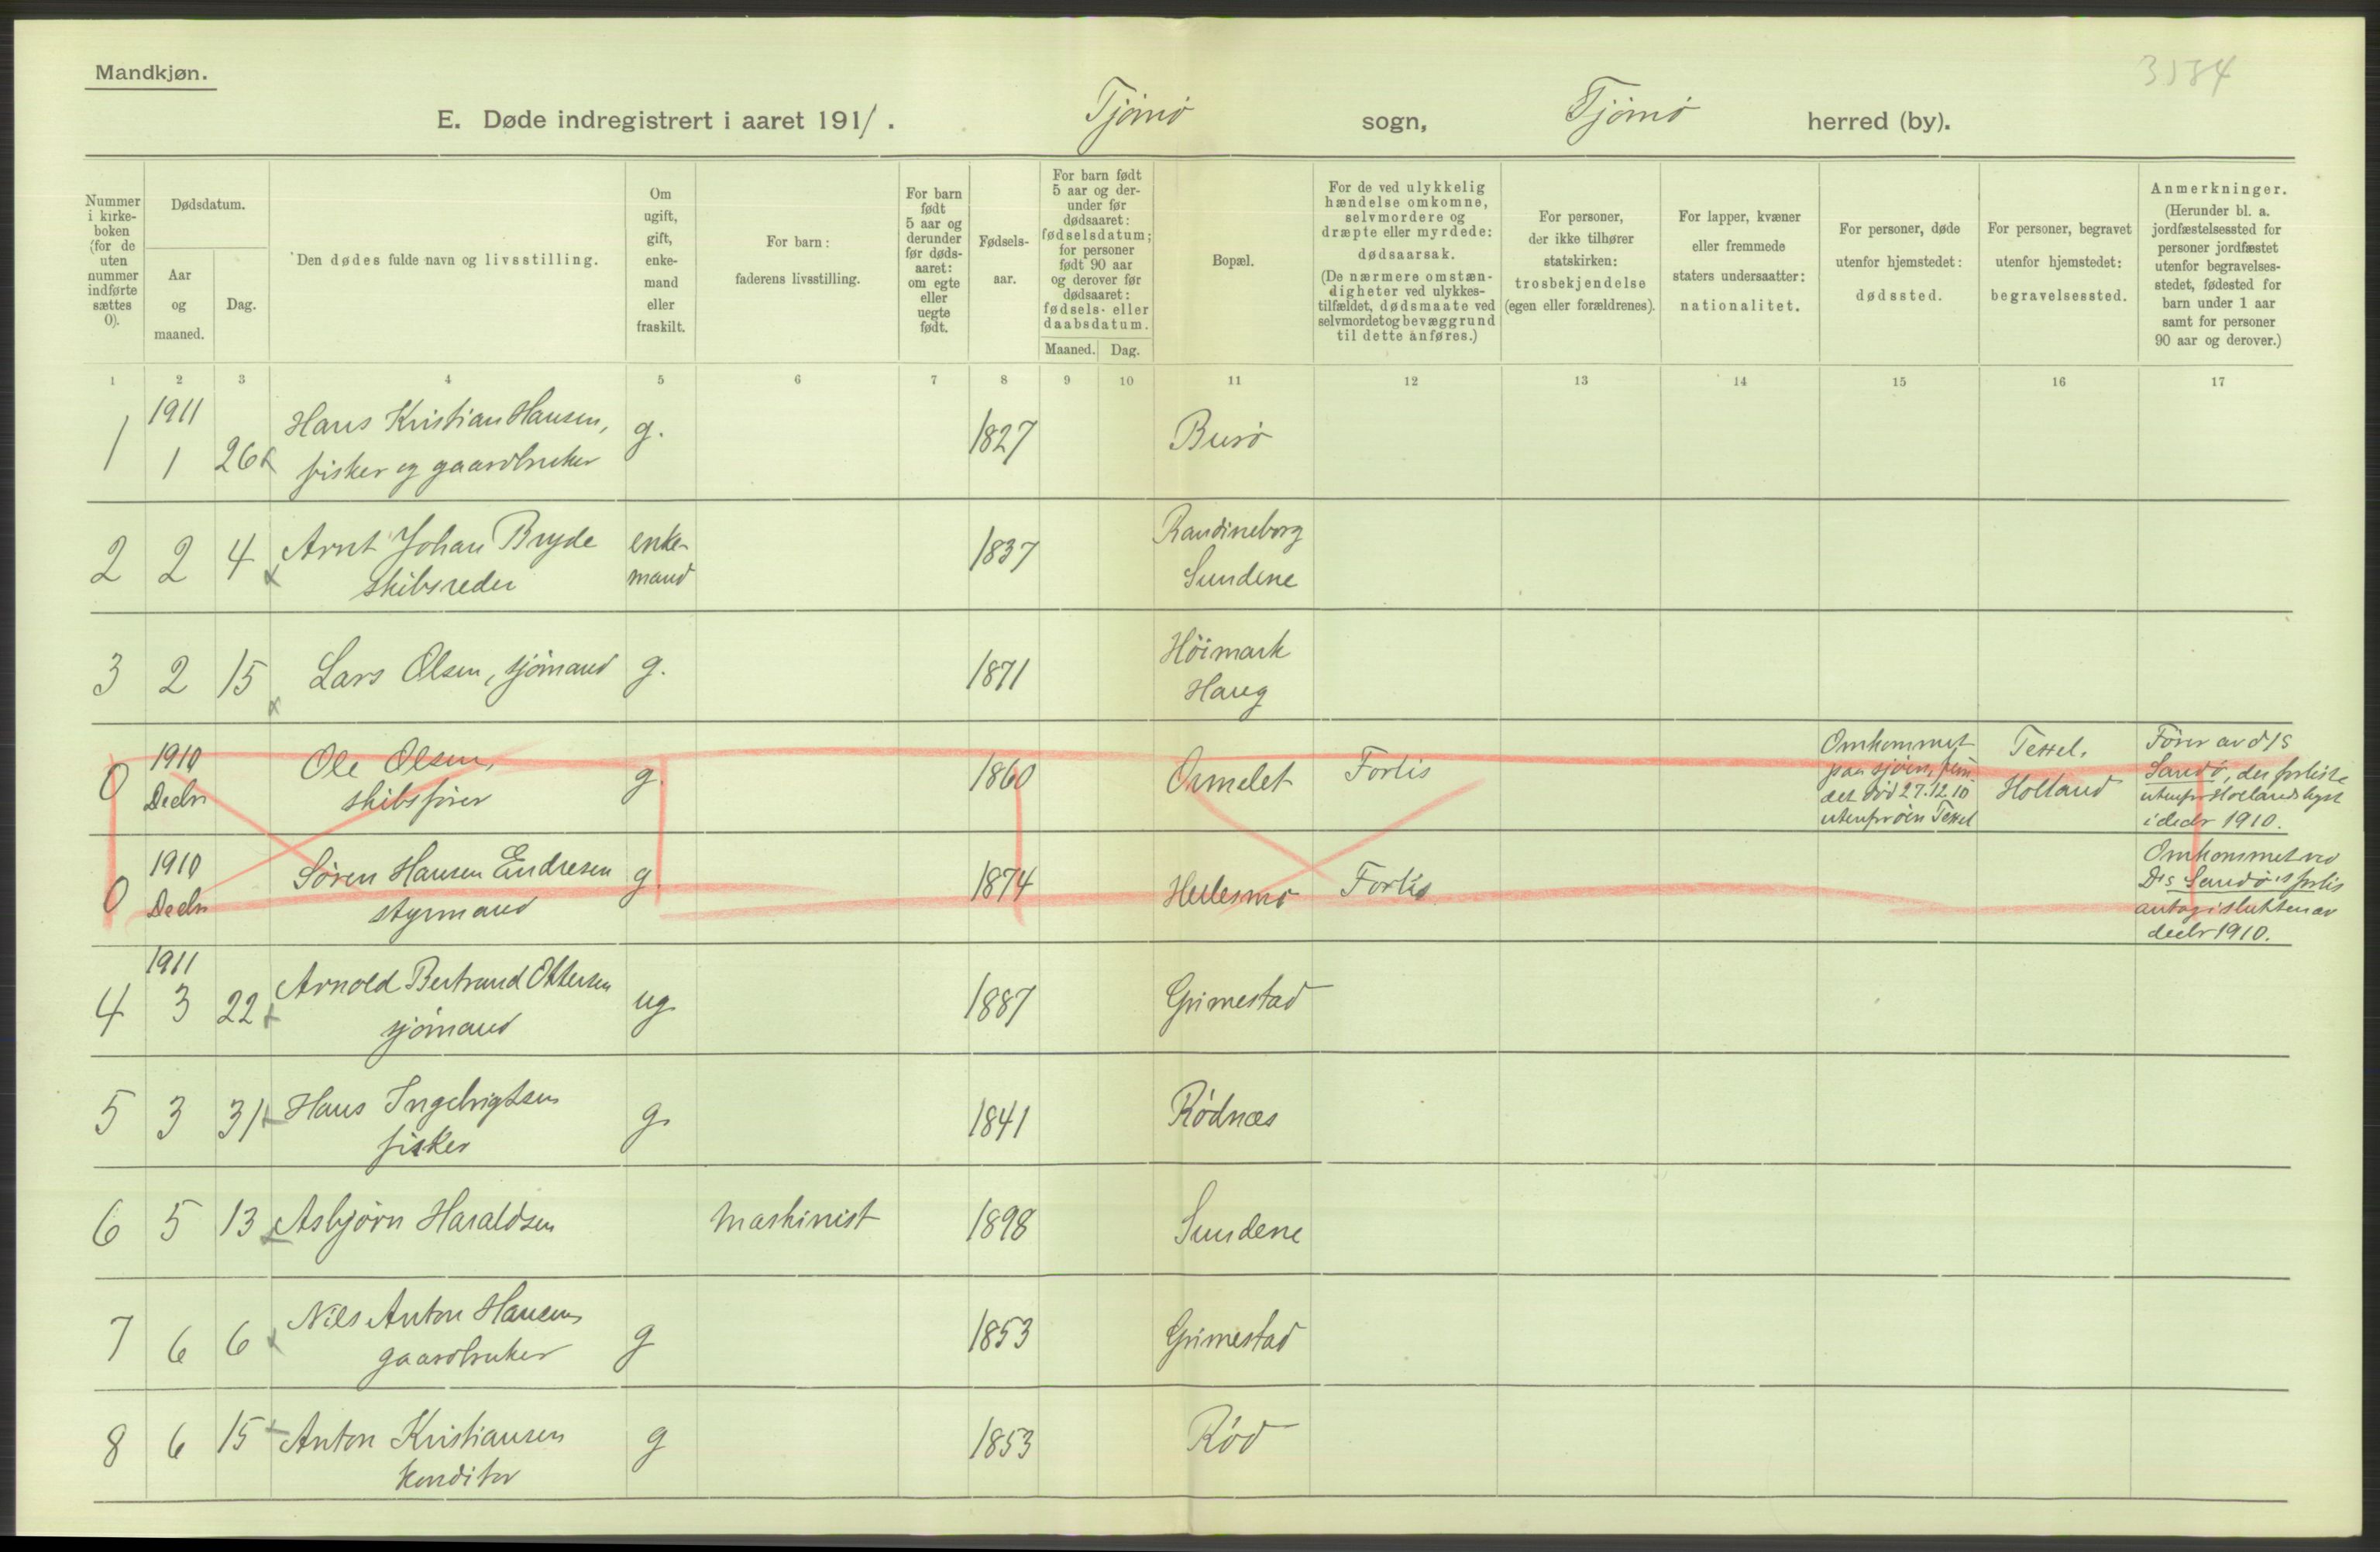 Mandkjøn.
3584
E. Døde indregistrert i aaret 1911. Tjömö sogn, Tjömö herred (by).
Nummer i kirke-boken (for de uten nummer indførte sættes 0).
Dødsdatum.
Aar og maaned.
Dag.
Den dødes fulde navn og livsstilling.
Om ugift, gift, enke-mand eller fraskilt.
For barn: faderens livsstilling.
For barn født 5 aar og derunder før døds-aaret: om egte eller uegte født.
Fødsels-aar.
For barn født 5 aar og der-under før dødsaaret: fødselsdatum; for personer født 90 aar og derover før dødsaaret: fødsels- eller daabsdatum.
Maaned. Dag.
Bopæl.
For de ved ulykkelig hændelse omkomne, selvmordere og dræpte eller myrdede: dødsaarsak. (De nærmere omstæn-digheter ved ulykkes-tilfældet, dødsmaate ved selvmordet og bevæggrund til dette anføres.)
For personer, der ikke tilhører statskirken: trosbekjendelse (egen eller forældrenes).
For lapper, kvæner eller fremmede staters undersaatter: nationalitet.
For personer, døde utenfor hjemstedet: dødssted.
For personer, begravet utenfor hjemstedet: begravelsessted.
Anmerkninger. (Herunder bl. a. jordfæstelsessted for personer jordfæstet utenfor begravelses-stedet, fødested for barn under 1 aar samt for personer 90 aar og derover.)
1 2 3 4 5 6 7 8 9 10 11 12 13 14 15 16 17
1911
1 1 26 Hans Kristian Hansen, g. 1827 Burö
fisker og gaardbruker
2 2 4 Arnt Johan Bryde enke- 1837 Randineborg
skibsreder mand Sundene
3 2 15 Lars Olsen, sjömand g. 1871 Höimark
Haug
0 1910 Ole Olsen, g. 1860 Ormelet Forlis Omkommet Texel, Fører av d/s
Decbr skibsfører paa sjöen, Holland Sandö, der forliste
det död 27.12.10 utenfor Hollands kyst
utenfor öen Texel i decbr 1910.
0 1910 Sören Hansen Endresen g. 1874 Hellesmo Forlis Omkommet ved
Decbr styrmand D/s Sandö's forlis
antag. i slutten av
decbr 1910.
1911
4 3 22 Arnold Bertrand Ottersen ug. 1887 Grimestad
sjömand
5 3 31 Hans Ingebrigtsen g. 1841 Rödnæs
fisker
6 5 13 Asbjörn Haraldsen maskinist 1898 Sundene
7 6 6 Nils Anton Hansen g 1853 Grimestad
gaardbruker
8 6 15 Anton Kristiansen g 1853 Röd
konditor